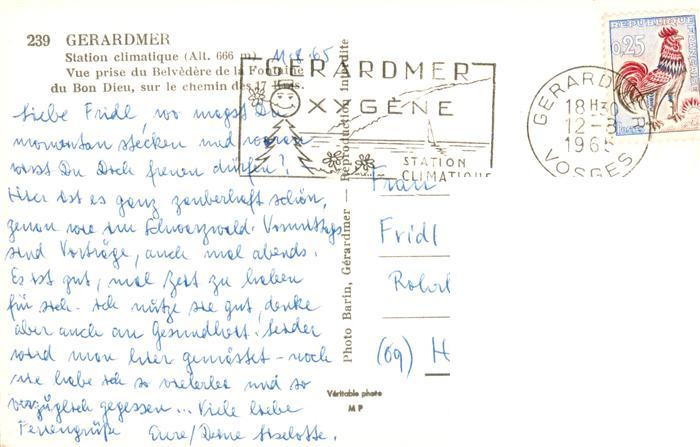 239 GERARDMER
Station climatique (Alt. 666 m) 11.8.65
Vue prise du Belvèdère de la Fontaine
du Bon Dieu, sur le chemin des 17 Kms.
Liebe Fridl, wo magst Du
momentan stecken und woran
wirst Du Dich freuen dürfen?
Hier ist es ganz zauberhaft schön,
genau wie im Schwarzwald. Vormittags
sind Vorträge, auch mal abends.
Es ist gut, mal Zeit zu haben
für sich. Ich nütze sie gut, denke
aber auch an Gesundheit. Leider
wird man hier gemästet - noch
nie habe ich so vielerlei und so
vorzüglich gegessen... Viele liebe
Feriengrüße Eure/Deine Liselotte.
Photo Barin, Gérardmer — Reproduction interdite
Véritable photo
M P
GERARDMER
OXYGÈNE
STATION
CLIMATIQUE
GERARDMER
18H30
12-8
1965
VOSGES
REPUBLIQUE FRANÇAISE
0,25
POSTES
Frau
Fridl
Rohrl
(09) H